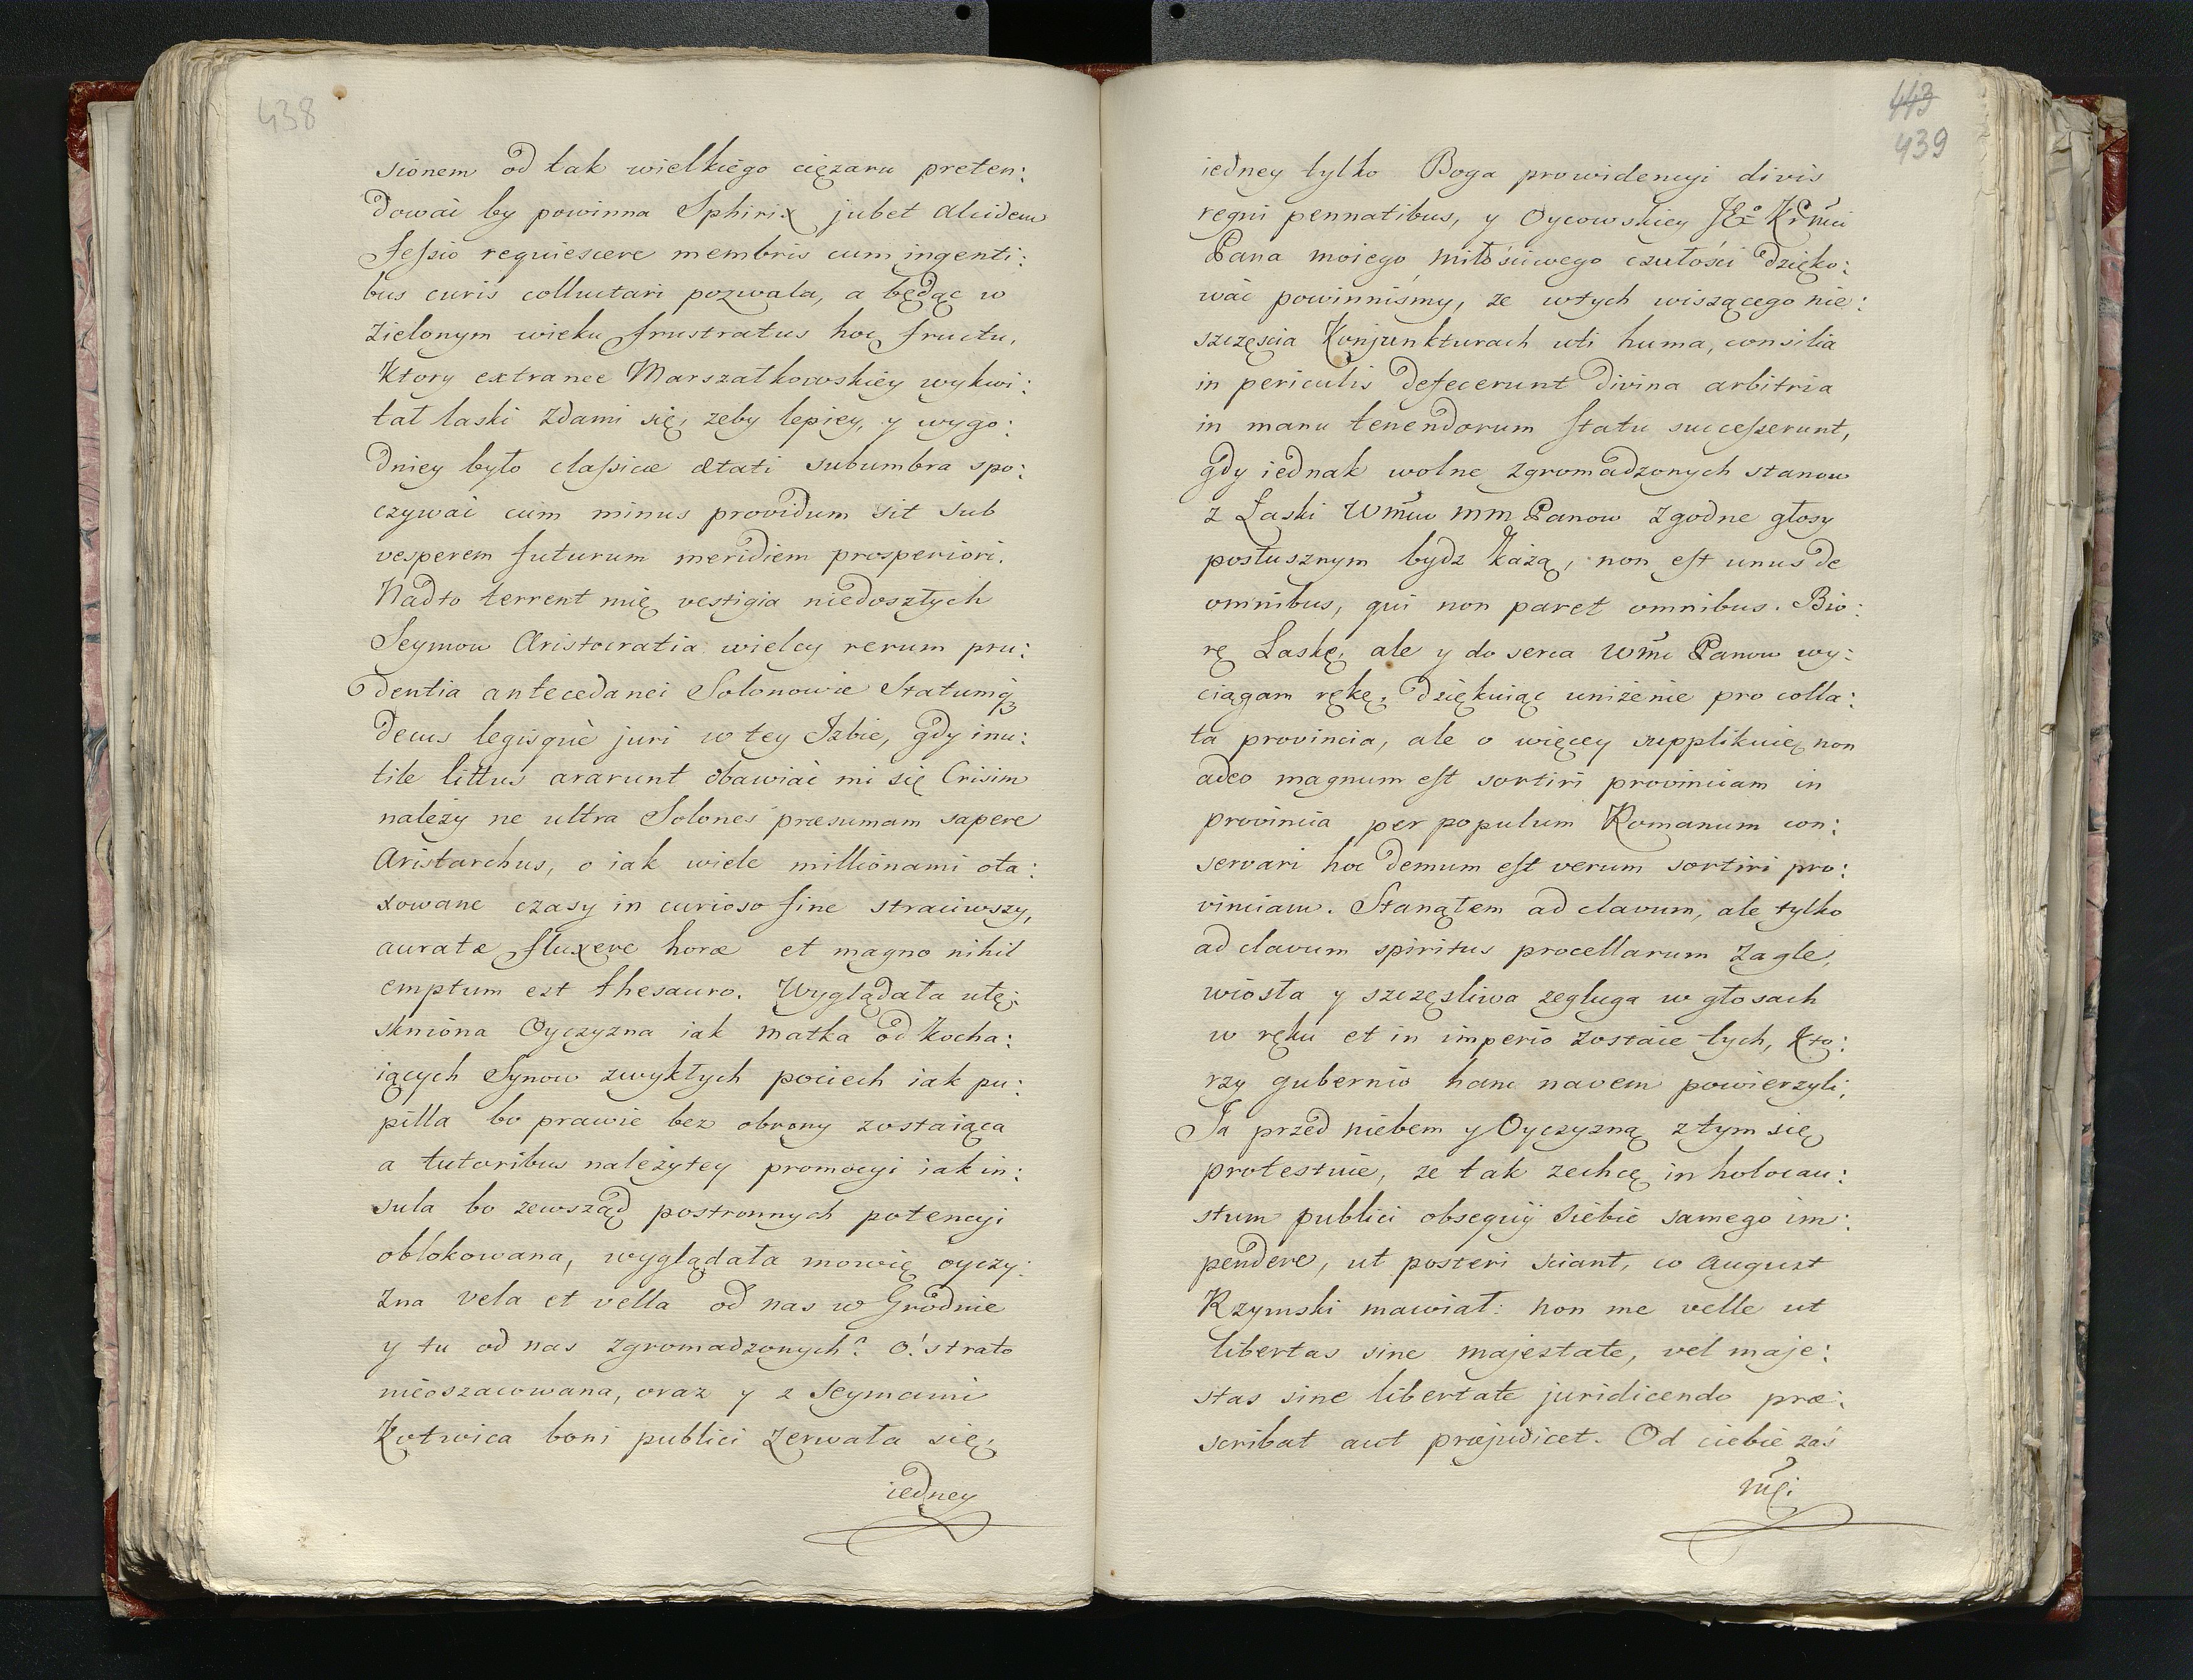 438
sionem od tak wielkiego ciężaru preten:
dować by powinna Sphirix jubet Alcidem
fessio requiescere membris cum ingenti:
bus curis colluctari pozwala, a będąc w
zielonym wieku frustratus hoc fructu,
ktory extranee Marszałkowskiey wykwi:
tał laski zdami się, zeby lepiey, y wygo:
dniey było classicæ ætati subumbra spo:
czywać cum minus providum sit sub
vesperem futurum meridiem prosperiori.
Nadto terrent mię vestigia niedoszłych
Seymow Aristocratia wielcy rerum pru:
dentia antecedanei Solonowie Statumq3
decus legisquè juri w tey Izbie, gdy inu:
tile littus ararunt obawiać mi się Crisim
należy ne ultra Solones præsumam sapere
Aristarchus, o iak wiele millionami ota:
xowane czasy in curioso fine straciwszy,
auratæ fluxere horæ et magno nihil
emptum est thesauro. Wyglądała utę:
skniona Oyczyzna iak matka od kocha:
iących Synow zwykłych pociech iak pu:
pilla bo prawie bez obrony zostaiąca
a tutoribus należytey promocyi iak in:
sula bo zewsząd postronnych potencyi
oblokowana, wyglądała mowię oyczy:
zna vela et vella od nas w Grodnie
y tu od nas zgromadzonych? o! strato
nieoszacowana, oraz y z Seymami
Kotwica boni publici zerwała się,
iedney
443
439
iedney tylko Boga prowidencyi divis
regni pennatibus, y Oycowskiey JEo Krm̃ci
Pana moiego miłościwego czułości dzięko:
wać powinnismy, ze wtych wiszącego nie:
szczęscia Konjunkturach uti huma, consilia
in periculis defecerunt divina arbitria
in manu tenendorum statu successerunt,
gdy iednak wolne zgromadzonych stanow
z Łaski Wm̃w mm Panow zgodne głosy
posłusznym bydz każą, non est unus de
omnibus, qui non paret omnibus. Bio:
rę Laskę, ale y do serca Wm̃c Panow wy:
ciągam rękę, dziękuiąc uniżenie pro colla:
ta provincia, ale o więcey supplikuię non
adeo magnum est sortiri provinciam in
provincia per populum Romanum con:
servari hoc demum est verum sortiri pro:
vinciam. Stanąłem ad clavum, ale tylko
ad clavum spiritus procellarum zagle,
wiosła y szczęsliwa zegluga w głosach
w ręku et in imperio zostaie tych, kto:
rzy gubernio hanc navem powierzyli,
Ja przed niebem y Oyczyzną ztym się
protestuie, ze tak zechcę in holocau:
stum publici obsequij siebie samego im:
pendere, ut posteri sciant, co August
Rzymski mawiał: non me velle ut
libertas sine majestate, vel maje:
stas sine libertate juridicendo præ:
scribat aut præjudicet. Od ciebie zaś